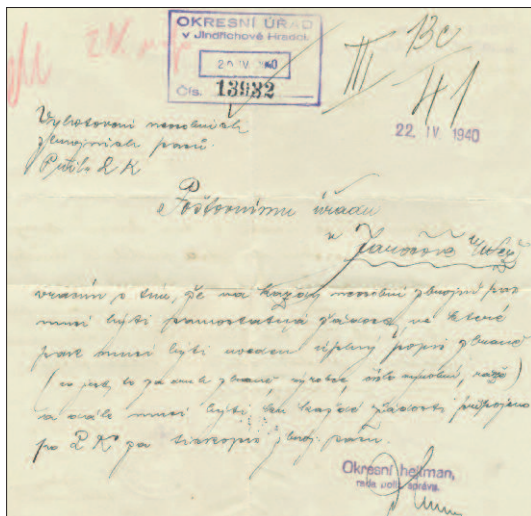 OKRESNÍ ÚŘAD
v Jindřichově Hradci
20 IV. 1940
Čís. 13932
III 13c
41
22. IV. 1940
Vyhotovení neosobních
zbrojních pasů.
Příl. 2 K
Poštovnímu úřadu
v Jarošově
vracím s tím, že na každý neosobní zbrojní pas
musí býti samostatná žádost, ve které
pak musí býti uveden úplný popis zbraně
(co jest to za druh zbraně, výrobce, číslo výrobní, ráže)
a dále musí býti ku každé žádosti připojeno
po 2 K za tiskopis zbroj. pasu.
Okresní hejtman,
rada polit. správy.